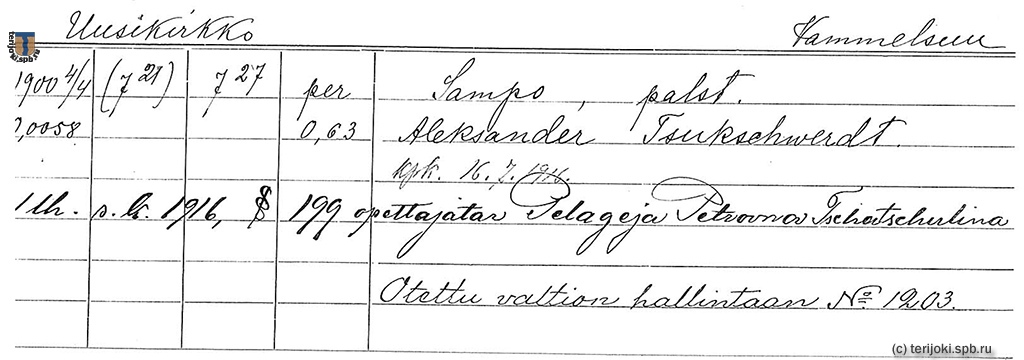 Uusikirkko Vammelsuu
1900 4/4 (7 21) 7 27 per Sampo, palst.
0,0058 0,63 Aleksander Tsukschwerdt.
kpk. 16.7.1916.
1 lh. s. k. 1916, § 199 opettajatar Pelageja Petrovna Tschotscherlina
Otettu valtion hallintaan No 1203.
terijoki.spb.ru
(c) terijoki.spb.ru